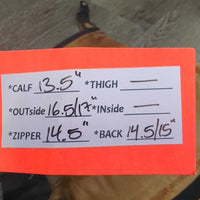 *CALF 13.5" *THIGH —
*OUTside 16.5/17" *INside —
*ZIPPER 14.5" *BACK 14.5/15"